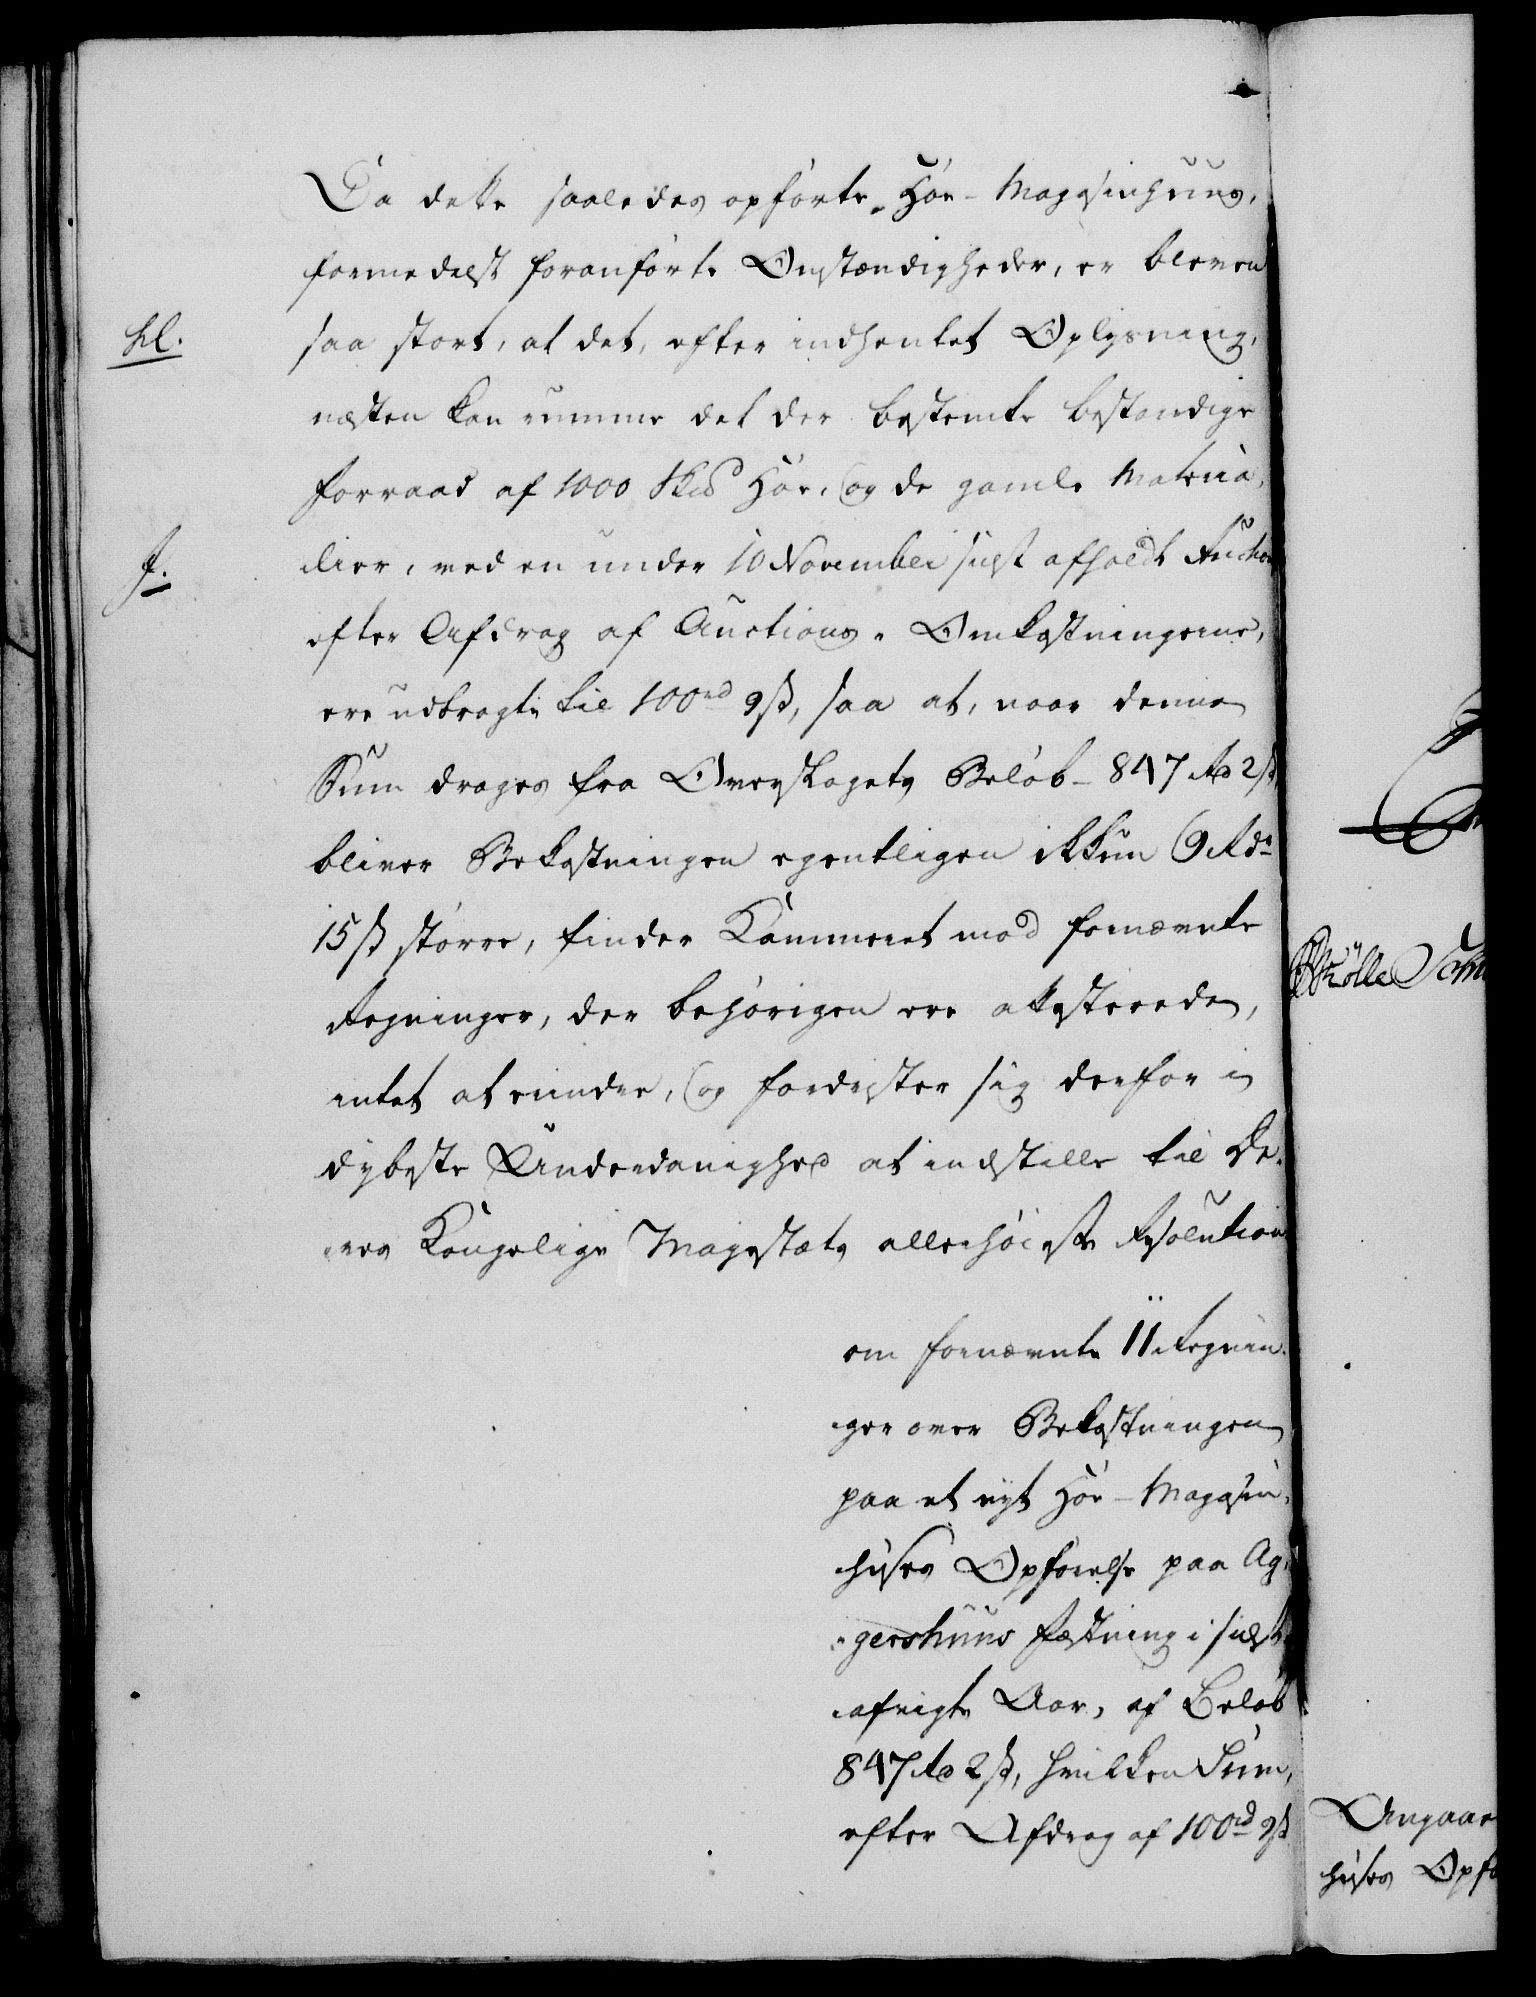 Da dette saaledes opførte Höe-Magasinhuus,
formedelst foranførte Omstændigheder, er bleven
hl.
saa stort, at det, efter indhentet Oplysning,
næsten kan rumme det der bestemte bestandige
Forraad af 1000 Sk℔ Höe, og de gamle Materia-
J.
lier, ved en under 10 November sidst afholdt Auction
efter Afdrag af Auctions-Omkostningerne,
ere udbragte til 100 rd 9 ß, saa at, naar denne
Sum drages fra Overslagets Beløb 847 Rd 2 ß,
bliver Bekostningen egentligen ikkun 9 Rdr
15 ß større, finder Kammeret mod fornævnte
Regninger, der behørigen ere attesterede,
intet at erindre, og fordrister sig derfor i
dybeste Underdanighed at indstille til De-
res Kongelige Majestæts allerhøieste Resolution
om fornævnte 11 Regnin-
ger over Bekostningen
paa et nyt Höe-Magasin-
huses Opførelse paa Ag-
gershuus Fæstning i sidst
afvigte Aar, af Beløb
847 Rd 2 ß, hvilken Sum,
efter Afdrag af 100 rd 9 ß
Angaae
huses Opfø